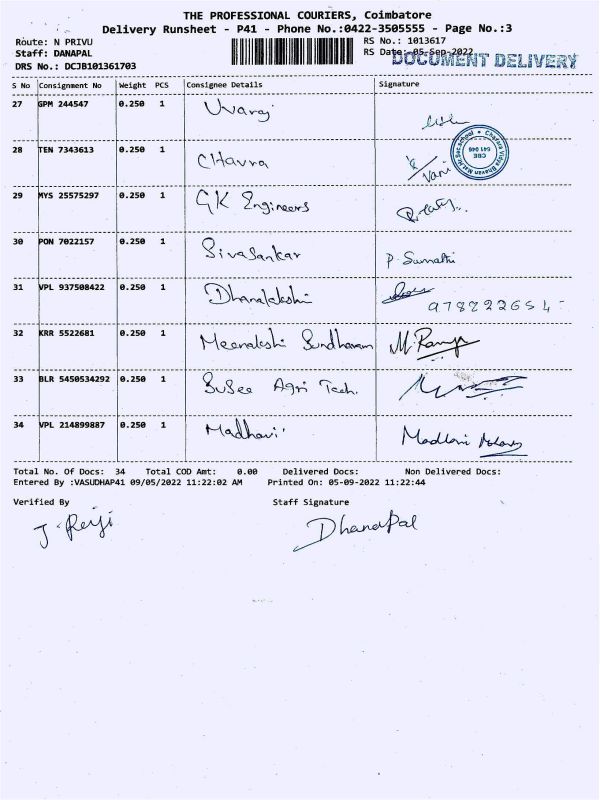 THE PROFESSIONAL COURIERS, Coimbatore
Delivery Runsheet - P41 - Phone No.:0422-3505555 - Page No.:3
Route: N PRIVU RS No.: 1013617
Staff: DANAPAL RS Date: 05-Sep-2022
DOCUMENT DELIVERY
DRS No.: DCJB101361703
S No Consignment No Weight PCS Consignee Details Signature
27 GPM 244547 0.250 1 Uvaraj
28 TEN 7343613 0.250 1 CHavra Vani
CBE 641 048
29 MYS 25575297 0.250 1 GK Engineers
30 PON 7022157 0.250 1 Sivasankar P Sumathi
31 VPL 937508422 0.250 1
32 KRR 5522681 0.250 1 Meenakshi Sundharam M. Ramya
33 BLR 5450534292 0.250 1 SuSee Agri Tech.
34 VPL 214899887 0.250 1 Madhavi
Total No. Of Docs: 34 Total COD Amt: 0.00 Delivered Docs: Non Delivered Docs:
Entered By :VASUDHAP41 09/05/2022 11:22:02 AM Printed On: 05-09-2022 11:22:44
Verified By Staff Signature
J Reiji DhanaPal